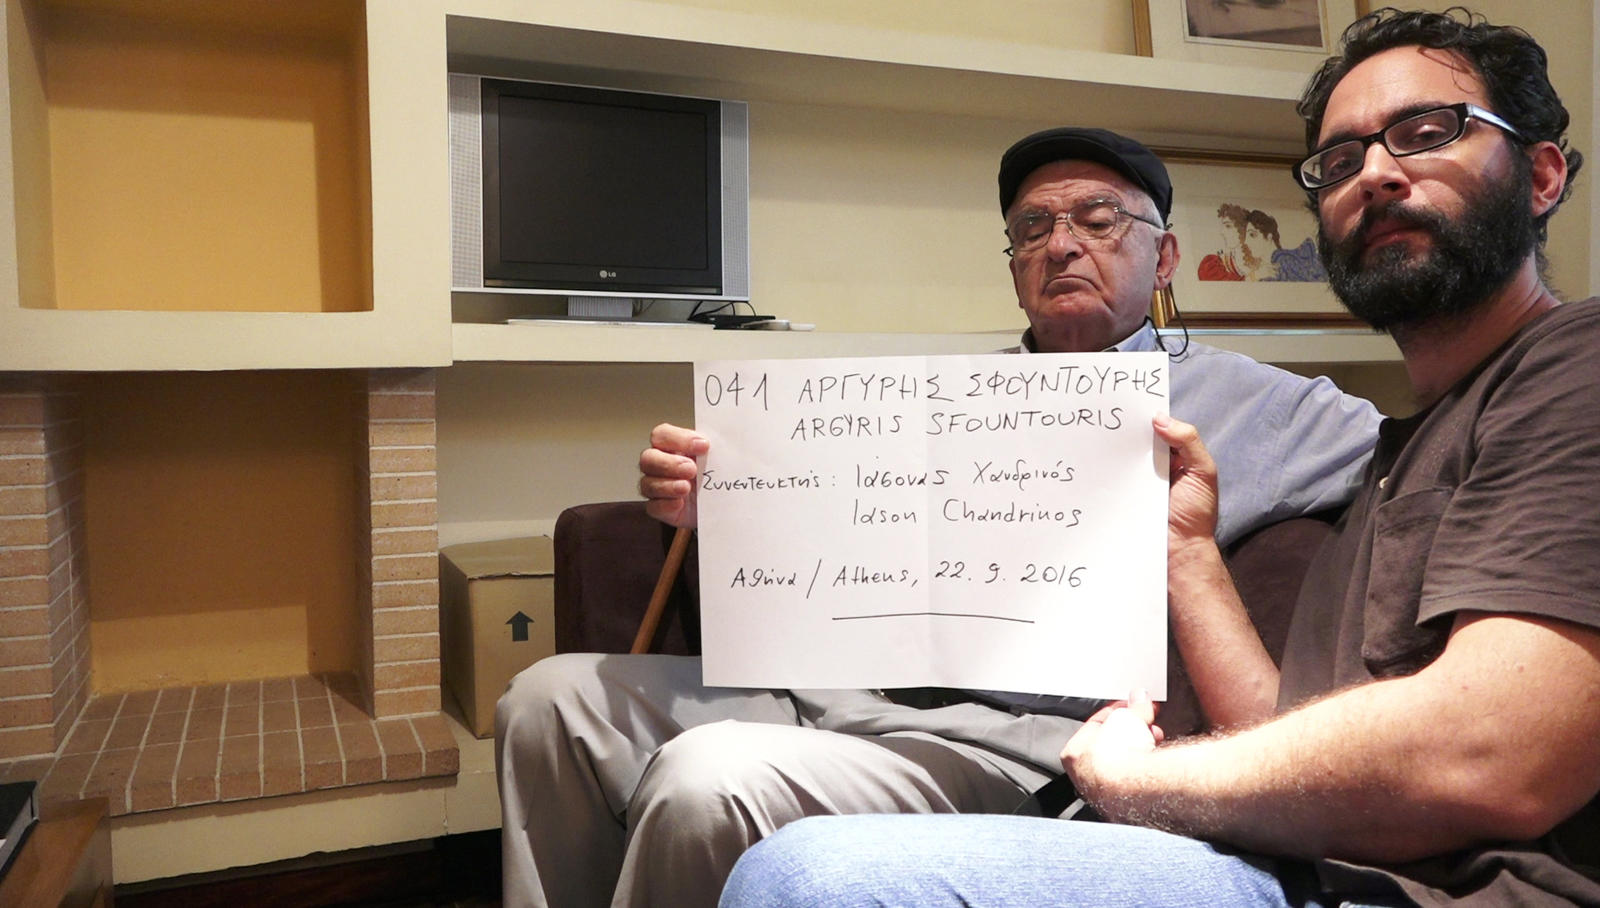 LG
041 ΑΡΓΥΡΗΣ ΣΦΟΥΝΤΟΥΡΗΣ
ARGYRIS SFOUNTOURIS
Συνεντευκτής: Ιάσονας Χανδρινός
Iason Chandrinos
Αθήνα / Athens, 22. 9. 2016